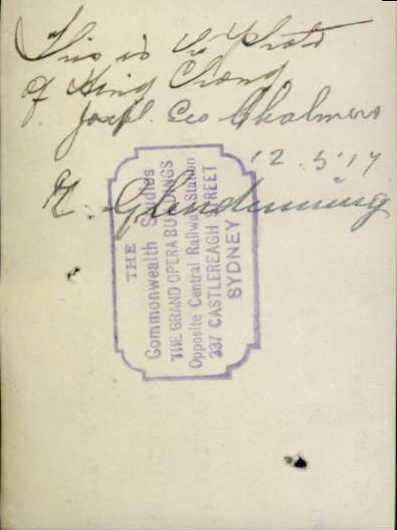 This is the Photo
of Hing Chong
Joseph. Geo Chalmers
12.5.17
Glendinning
THE
Commonwealth Studios
THE GRAND OPERA BUILDINGS
Opposite Central Railway Station
337 CASTLEREAGH STREET
SYDNEY